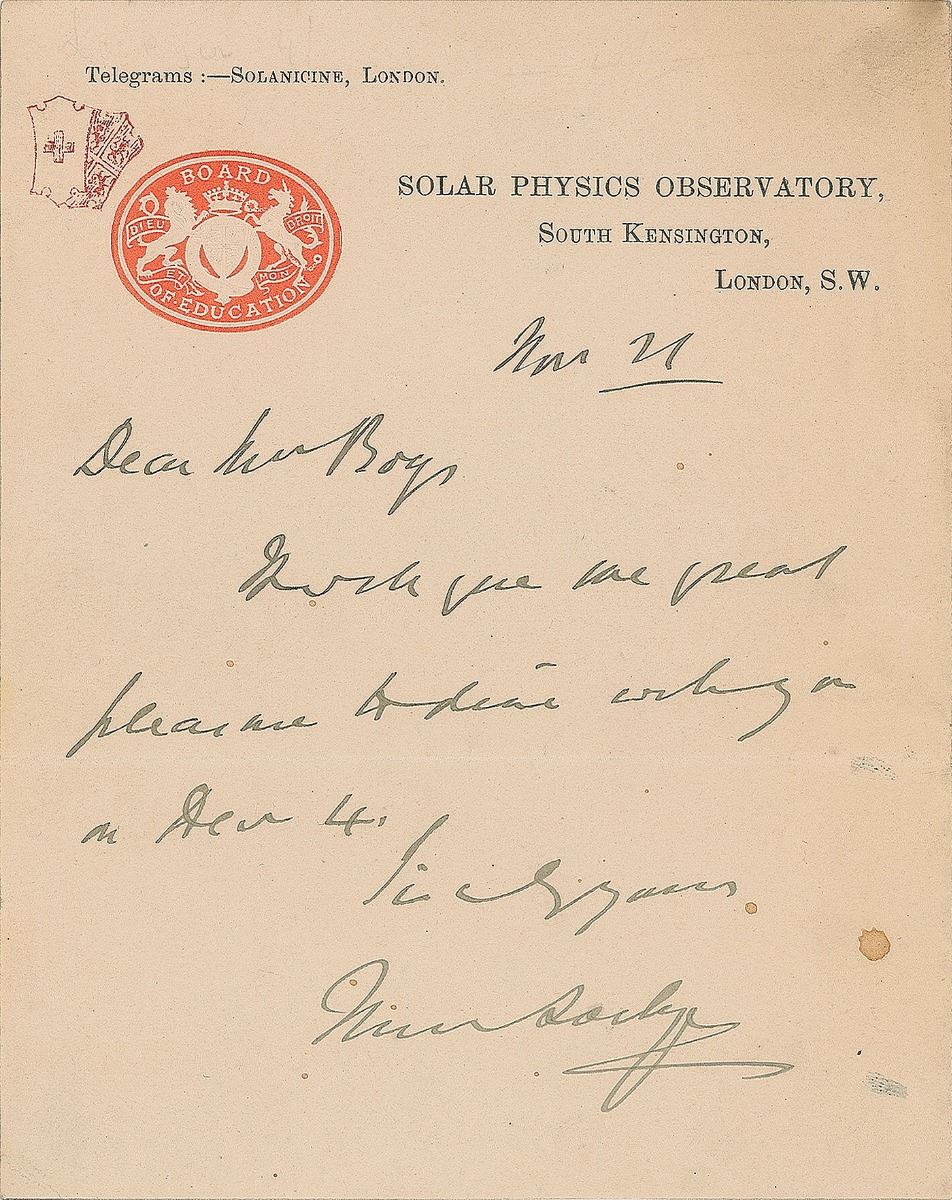 Telegrams :—SOLANICINE, LONDON.
BOARD
OF·EDUCATION
DIEU ET MON DROIT
SOLAR PHYSICS OBSERVATORY,
SOUTH KENSINGTON,
LONDON, S.W.
Nov 21
Dear Mr Boys
It will give me great
pleasure to dine with you
on Dec 4.
Sincly yours
Norman Lockyer